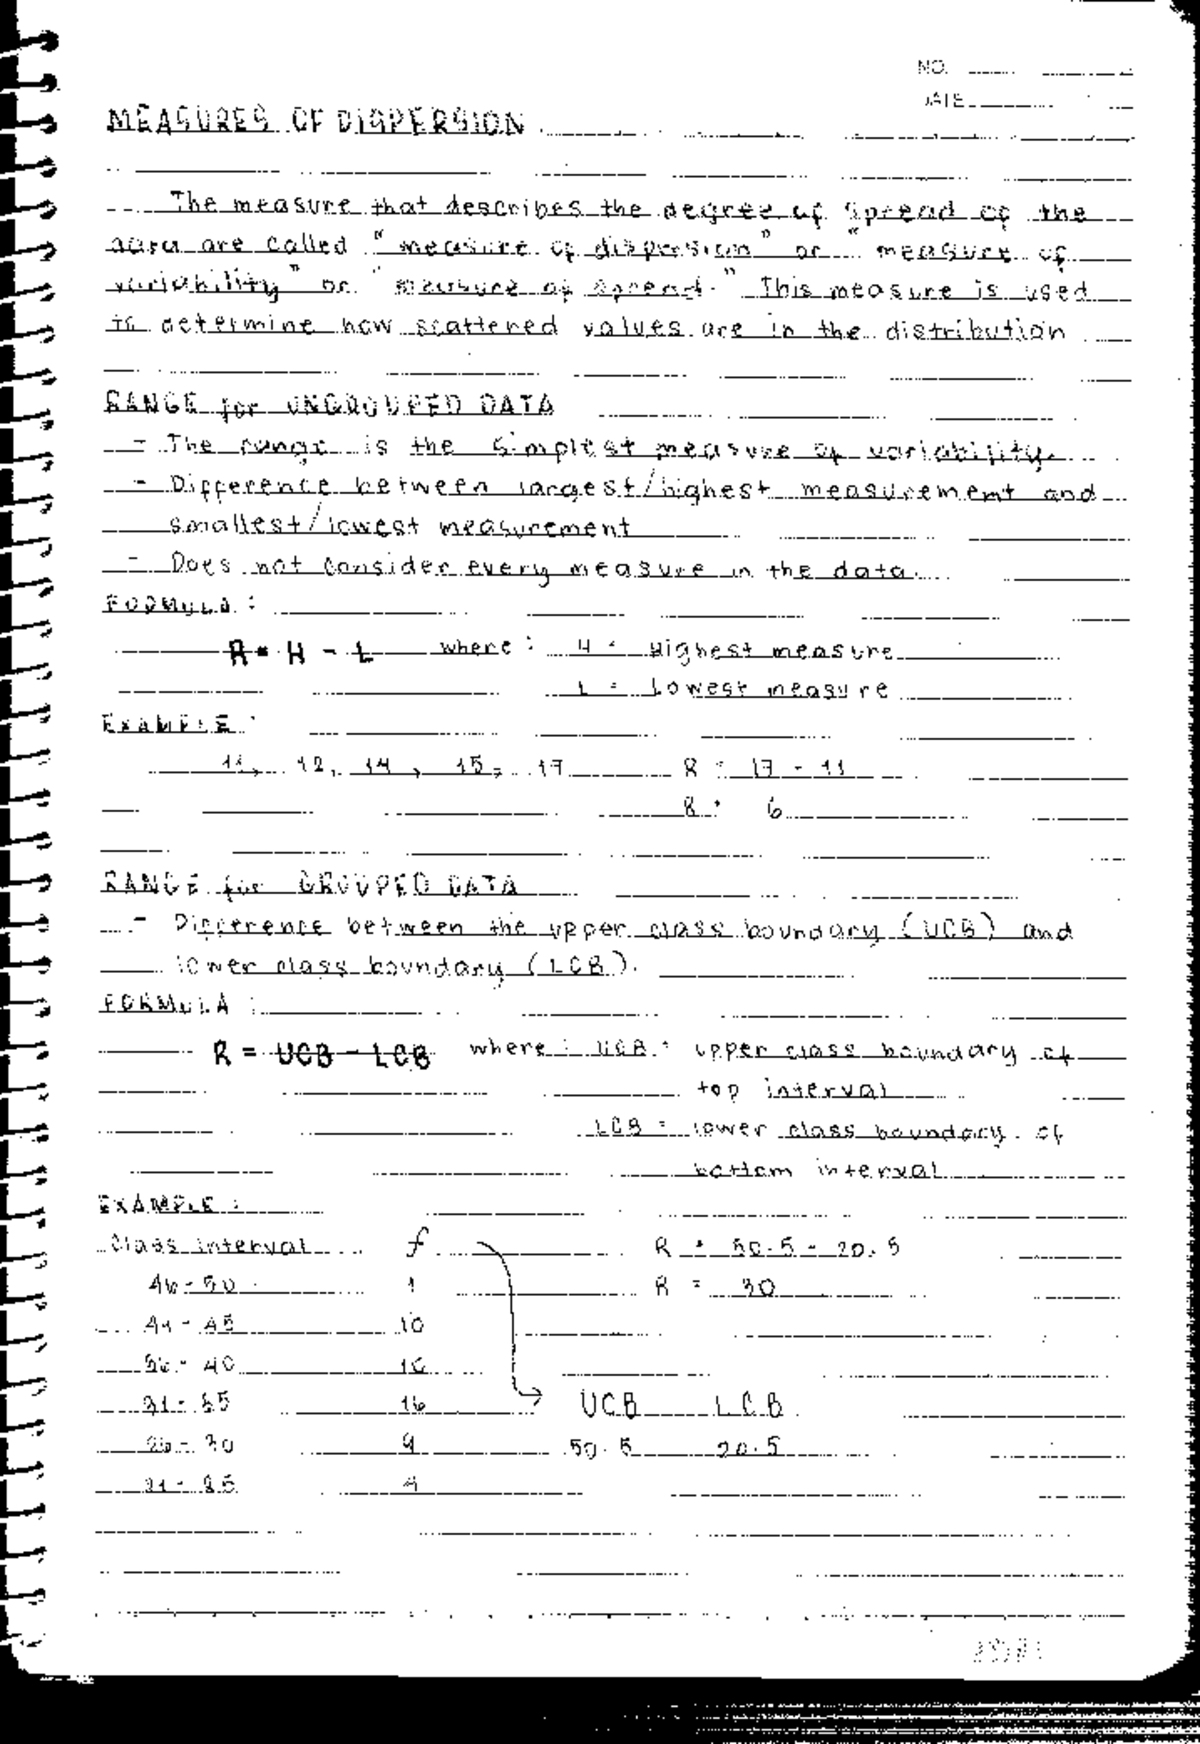 NO.
DATE
MEASURES OF DISPERSION
The measure that describes the degree of spread of the
data are called "measure of dispersion" or "measure of
variability" or "measure of spread." This measure is used
to determine how scattered values are in the distribution
RANGE for UNGROUPED DATA
- The range is the simplest measure of variability.
- Difference between largest/highest measurement and
smallest/lowest measurement
- Does not consider every measure in the data.
FORMULA :
R = H - L where : H = Highest measure
L = Lowest measure
EXAMPLE :
11, 12, 14, 15, 17 R = 17 - 11
R = 6
RANGE for GROUPED DATA
- Difference between the upper class boundary (UCB) and
lower class boundary (LCB).
FORMULA :
R = UCB - LCB where : UCB = upper class boundary of
top interval
LCB = lower class boundary of
bottom interval
EXAMPLE :
Class interval f R = 50.5 - 20.5
46 - 50 1 R = 30
41 - 45 10
36 - 40 10
31 - 35 16 UCB LCB
26 - 30 9 50.5 20.5
21 - 25 4